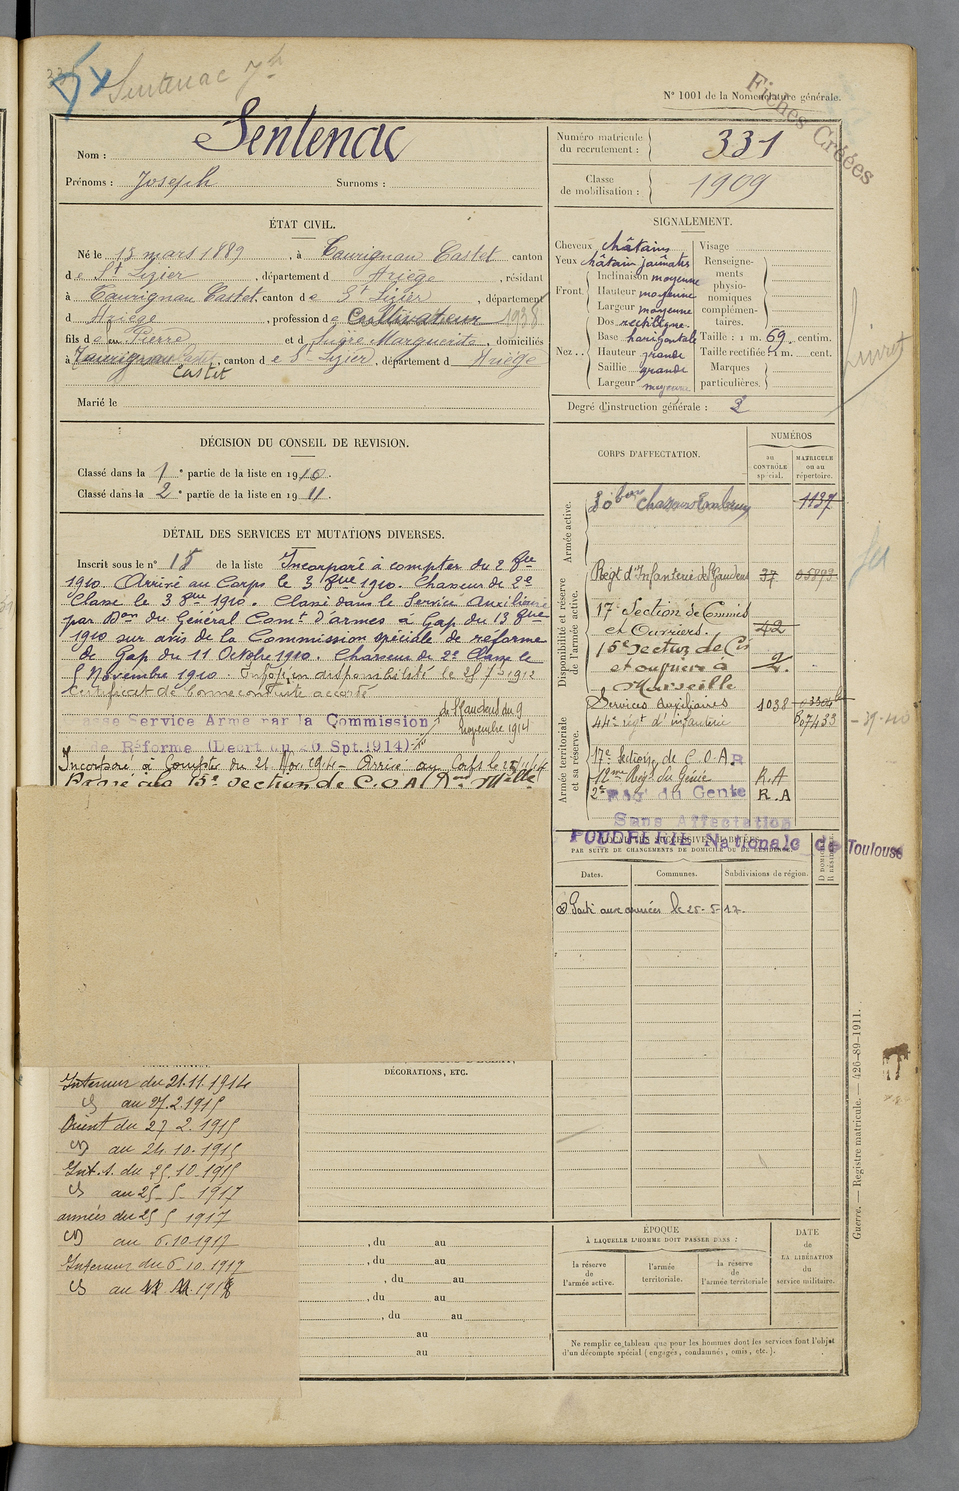 Sentenac Jh
N° 1001 de la Nomenclature générale.
Fiches Créées
Nom : Sentenac
Prénoms : Joseph Surnoms :
Numéro matricule du recrutement : 331
Classe de mobilisation : 1909
ÉTAT CIVIL.
Né le 13 mars 1889, à Taurignan Castet canton
de St Lizier, département d Ariège, résidant
à Taurignan Castet, canton de St Lizier, département
d Ariège, profession de Cultivateur 1938
fils de feu Pierre et d Sugre Marguerite, domiciliés
à Taurignan Castet, canton de St Lizier, département d Ariège
Castet
Marié le
SIGNALEMENT.
Cheveux châtains
Yeux châtain jaunâtre
Front. Inclinaison moyenne
Hauteur moyenne
Largeur moyenne
Nez.. Dos rectiligne.
Base horizontale
Hauteur grande
Saillie grande
Largeur moyenne
Visage
Renseignements physionomiques complémentaires.
Taille : 1 m. 69 centim.
Taille rectifiée : 1 m. cent.
Marques particulières.
Degré d'instruction générale : 2
livret
DÉCISION DU CONSEIL DE REVISION.
Classé dans la 1e partie de la liste en 1910.
Classé dans la 2e partie de la liste en 1911.
DÉTAIL DES SERVICES ET MUTATIONS DIVERSES.
Inscrit sous le n° 15 de la liste Incorporé à compter du 2 8bre
1910. Arrivé au Corps le 3 8bre 1910. Chasseur de 2e
Classe le 3 8bre 1910. Classé dans le Service Auxiliaire
par Don du Général Comt d'armes à Gap du 13 8bre
1910 sur avis de la Commission spéciale de réforme
de Gap du 11 Octobre 1910. Chasseur de 2e Classe le
5 Novembre 1910. Envoyé en disponibilité le 25 7bre 1912
Certificat de bonne conduite accordé
Classé Service Armé par la Commission de St Gaudens du 9
de Réforme (Décret du 26 Spt. 1914) novembre 1914
Incorporé à Compter du 21 Nov. 1914 - Arrivé au Corps le
Passé à la 15e Section de C.O.A.
CORPS D'AFFECTATION.
NUMÉROS
au CONTRÔLE spécial.
MATRICULE ou au répertoire.
Armée active.
Chasseurs 1137
Disponibilité et réserve de l'armée active.
Régt d'Infanterie de St Gaudens 37 05893
17e Section de Commis
et Ouvriers. 42
15e Section de Cis
et ouvriers à
Marseille
Armée territoriale et sa réserve.
Services Auxiliaires 1038
44e régt d'infanterie 07433
17e Section de C.O.A. R
Régt du Génie R.A
2e Reg' du Génie R.A
Sans Affectation
POUDRERIE Nationale de Toulouse
LOCALITÉS SUCCESSIVES HABITÉES
PAR SUITE DE CHANGEMENTS DE DOMICILE OU DE RÉSIDENCE.
Dates. Communes. Subdivisions de région.
Parti aux armées le 25-5-17.
DÉCORATIONS, ETC.
Intérieur du 21.11.1914
au 27.2.1915
Orient du 27 2.1915
au 24.10.1915
Int. du 25.10.1915
au 25-5-1917
armées du 25 5 1917
au 6.10.1917
Intérieur du 6.10.1917
au
, du au
, du au
, du au
, du au
, du au
au
au
ÉPOQUE
À LAQUELLE L'HOMME DOIT PASSER DANS :
la réserve de l'armée active.
l'armée territoriale.
la réserve de l'armée territoriale
DATE de LA LIBÉRATION du service militaire.
Ne remplir ce tableau que pour les hommes dont les services font l'objet
d'un décompte spécial (engagés, condamnés, omis, etc.).
Guerre. — Registre matricule. — 426-89-1911.